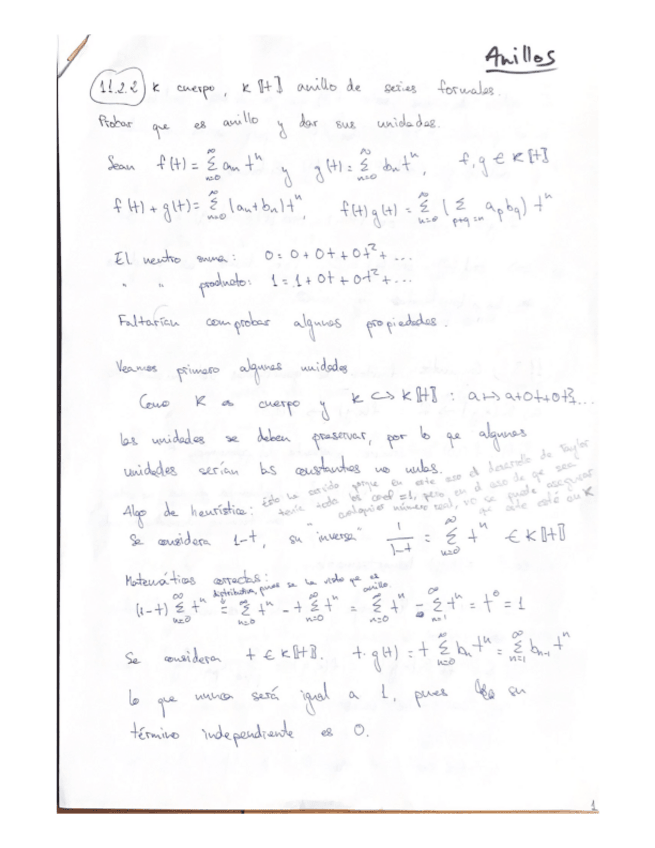 Anillos
11.2.2 K cuerpo, K[[t]] anillo de series formales.
Probar que es anillo y dar sus unidades.
Sean f(t) = ∑_{n=0}^∞ a_n t^n y g(t) = ∑_{n=0}^∞ b_n t^n, f, g ∈ K[[t]]
f(t) + g(t) = ∑_{n=0}^∞ (a_n + b_n) t^n, f(t) g(t) = ∑_{n=0}^∞ (∑_{p+q=n} a_p b_q) t^n
El neutro suma: 0 = 0 + 0t + 0t² + ...
" " producto: 1 = 1 + 0t + 0t² + ...
Faltarían comprobar algunas propiedades.
Veamos primero algunas unidades
Como K es cuerpo y K ↪ K[[t]] : a ↦ a + 0t + 0t² + ...
las unidades se deben preservar, por lo que algunas
unidades serían las constantes no nulas.
Algo de heurística: Esto ha valido porque en este caso el desarrollo de Taylor
tenía todo los coef = 1, pero, en el caso de que sea
cualquier número real, no se puede asegurar
que este esté en K
Se considera 1-t, su "inversa" 1/(1-t) = ∑_{n=0}^∞ t^n ∈ K[[t]]
Matemáticas correctas:
distributiva, pues se ha visto que es anillo.
(1-t) ∑_{n=0}^∞ t^n = ∑_{n=0}^∞ t^n - t ∑_{n=0}^∞ t^n = ∑_{n=0}^∞ t^n - ∑_{n=1}^∞ t^n = t^0 = 1
Se considera t ∈ K[[t]]. t·g(t) = t ∑_{n=0}^∞ b_n t^n = ∑_{n=1}^∞ b_{n-1} t^n
lo que nunca será igual a 1, pues su
término independiente es 0.
1